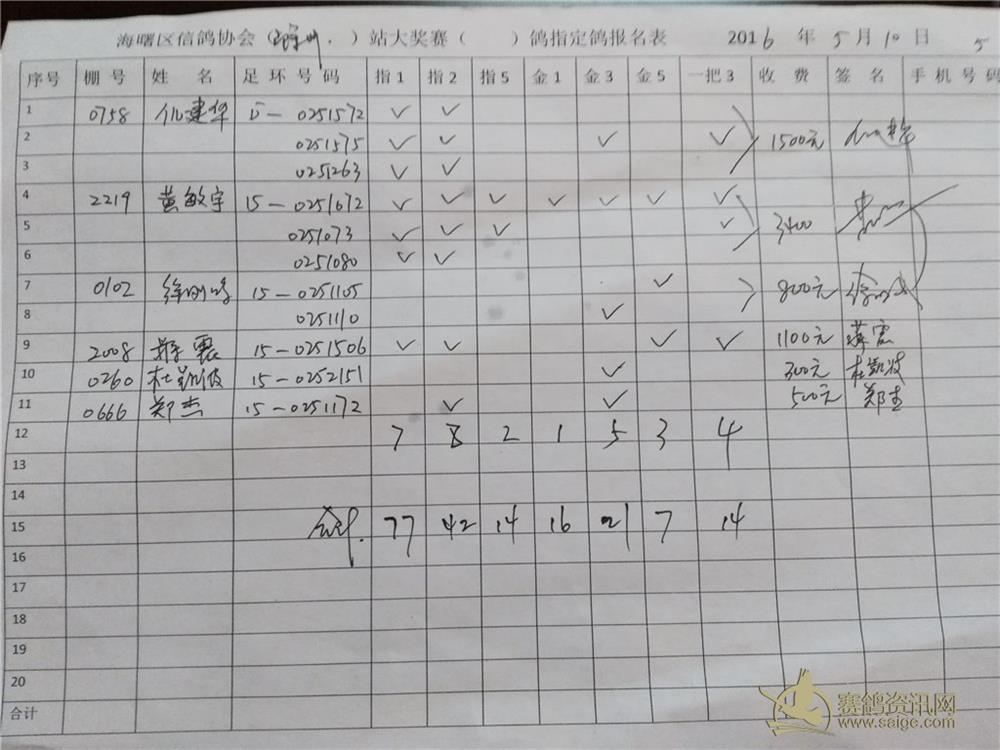 海曙区信鸽协会（徐州.）站大奖赛（ ）鸽指定鸽报名表 2016 年 5 月 10 日 5
序号 棚号 姓名 足环号码 指1 指2 指5 金1 金3 金5 一把3 收费 签名 手机号码
1 0758 仇建华 15－0251572 ✓ ✓
2 0251575 ✓ ✓ ✓ ✓ 1500元
3 0251263 ✓ ✓
4 2219 黄敏宇 15－0251072 ✓ ✓ ✓ ✓ ✓ ✓ ✓
5 0251073 ✓ ✓ ✓ ✓ 3400
6 0251080 ✓ ✓
7 0102 徐刚鸣 15－0251105 ✓ 800元
8 0251110 ✓
9 2008 蒋震 15－0251506 ✓ ✓ ✓ ✓ 1100元 蒋震
10 0260 杜凯波 15－0252151 ✓ 300元 杜凯波
11 0666 郑杰 15－0251172 ✓ ✓ 500元 郑杰
12 7 8 2 1 5 3 4
13
14
15 合计. 77 42 14 16 21 7 14
16
17
18
19
20
合计
赛鸽资讯网
www.saige.com